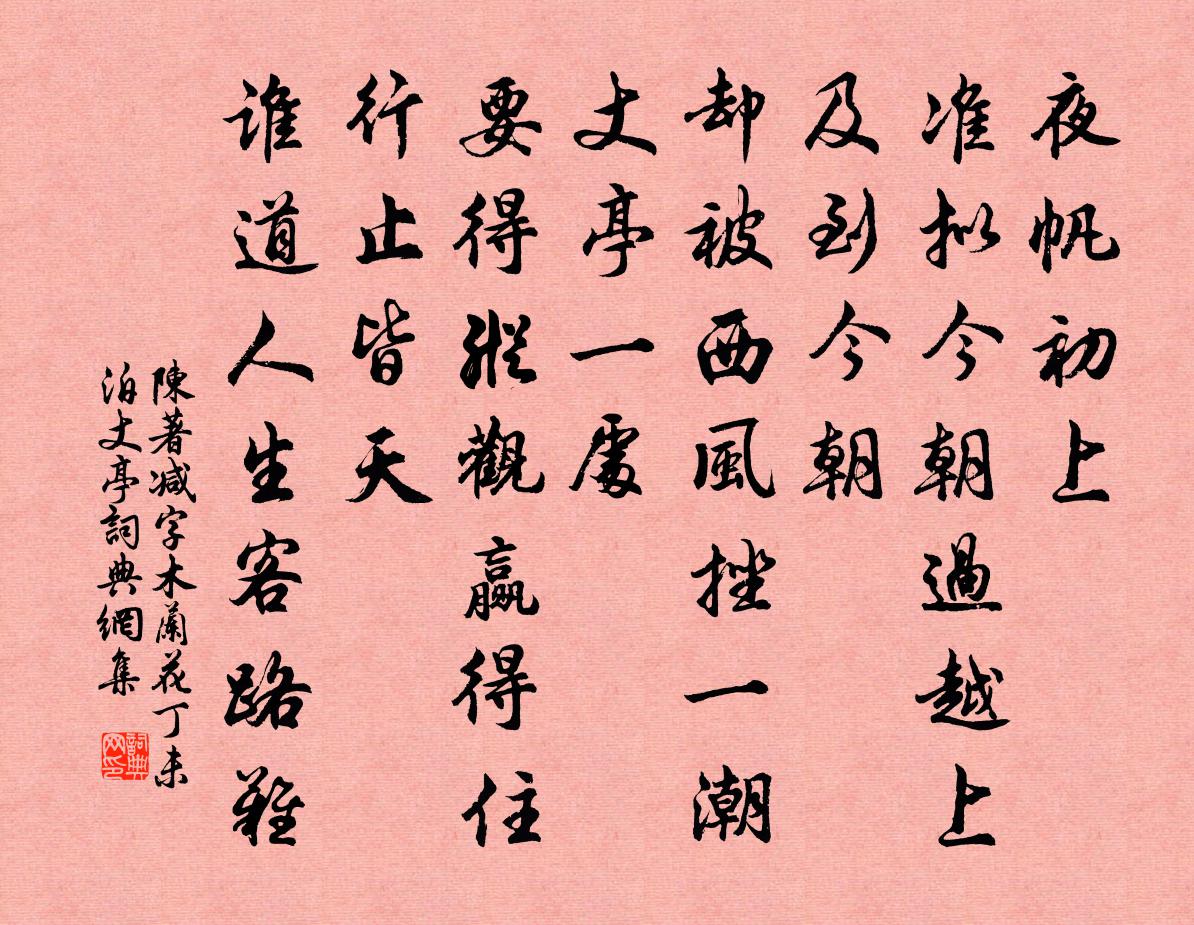 夜帆初上
准拟今朝過越上
及到今朝
却被西風挫一潮
丈亭一處
要得縱觀贏得住
行止皆天
谁道人生客路難
陳著减字木蘭花丁未
泊丈亭詞典網集
詞典网印